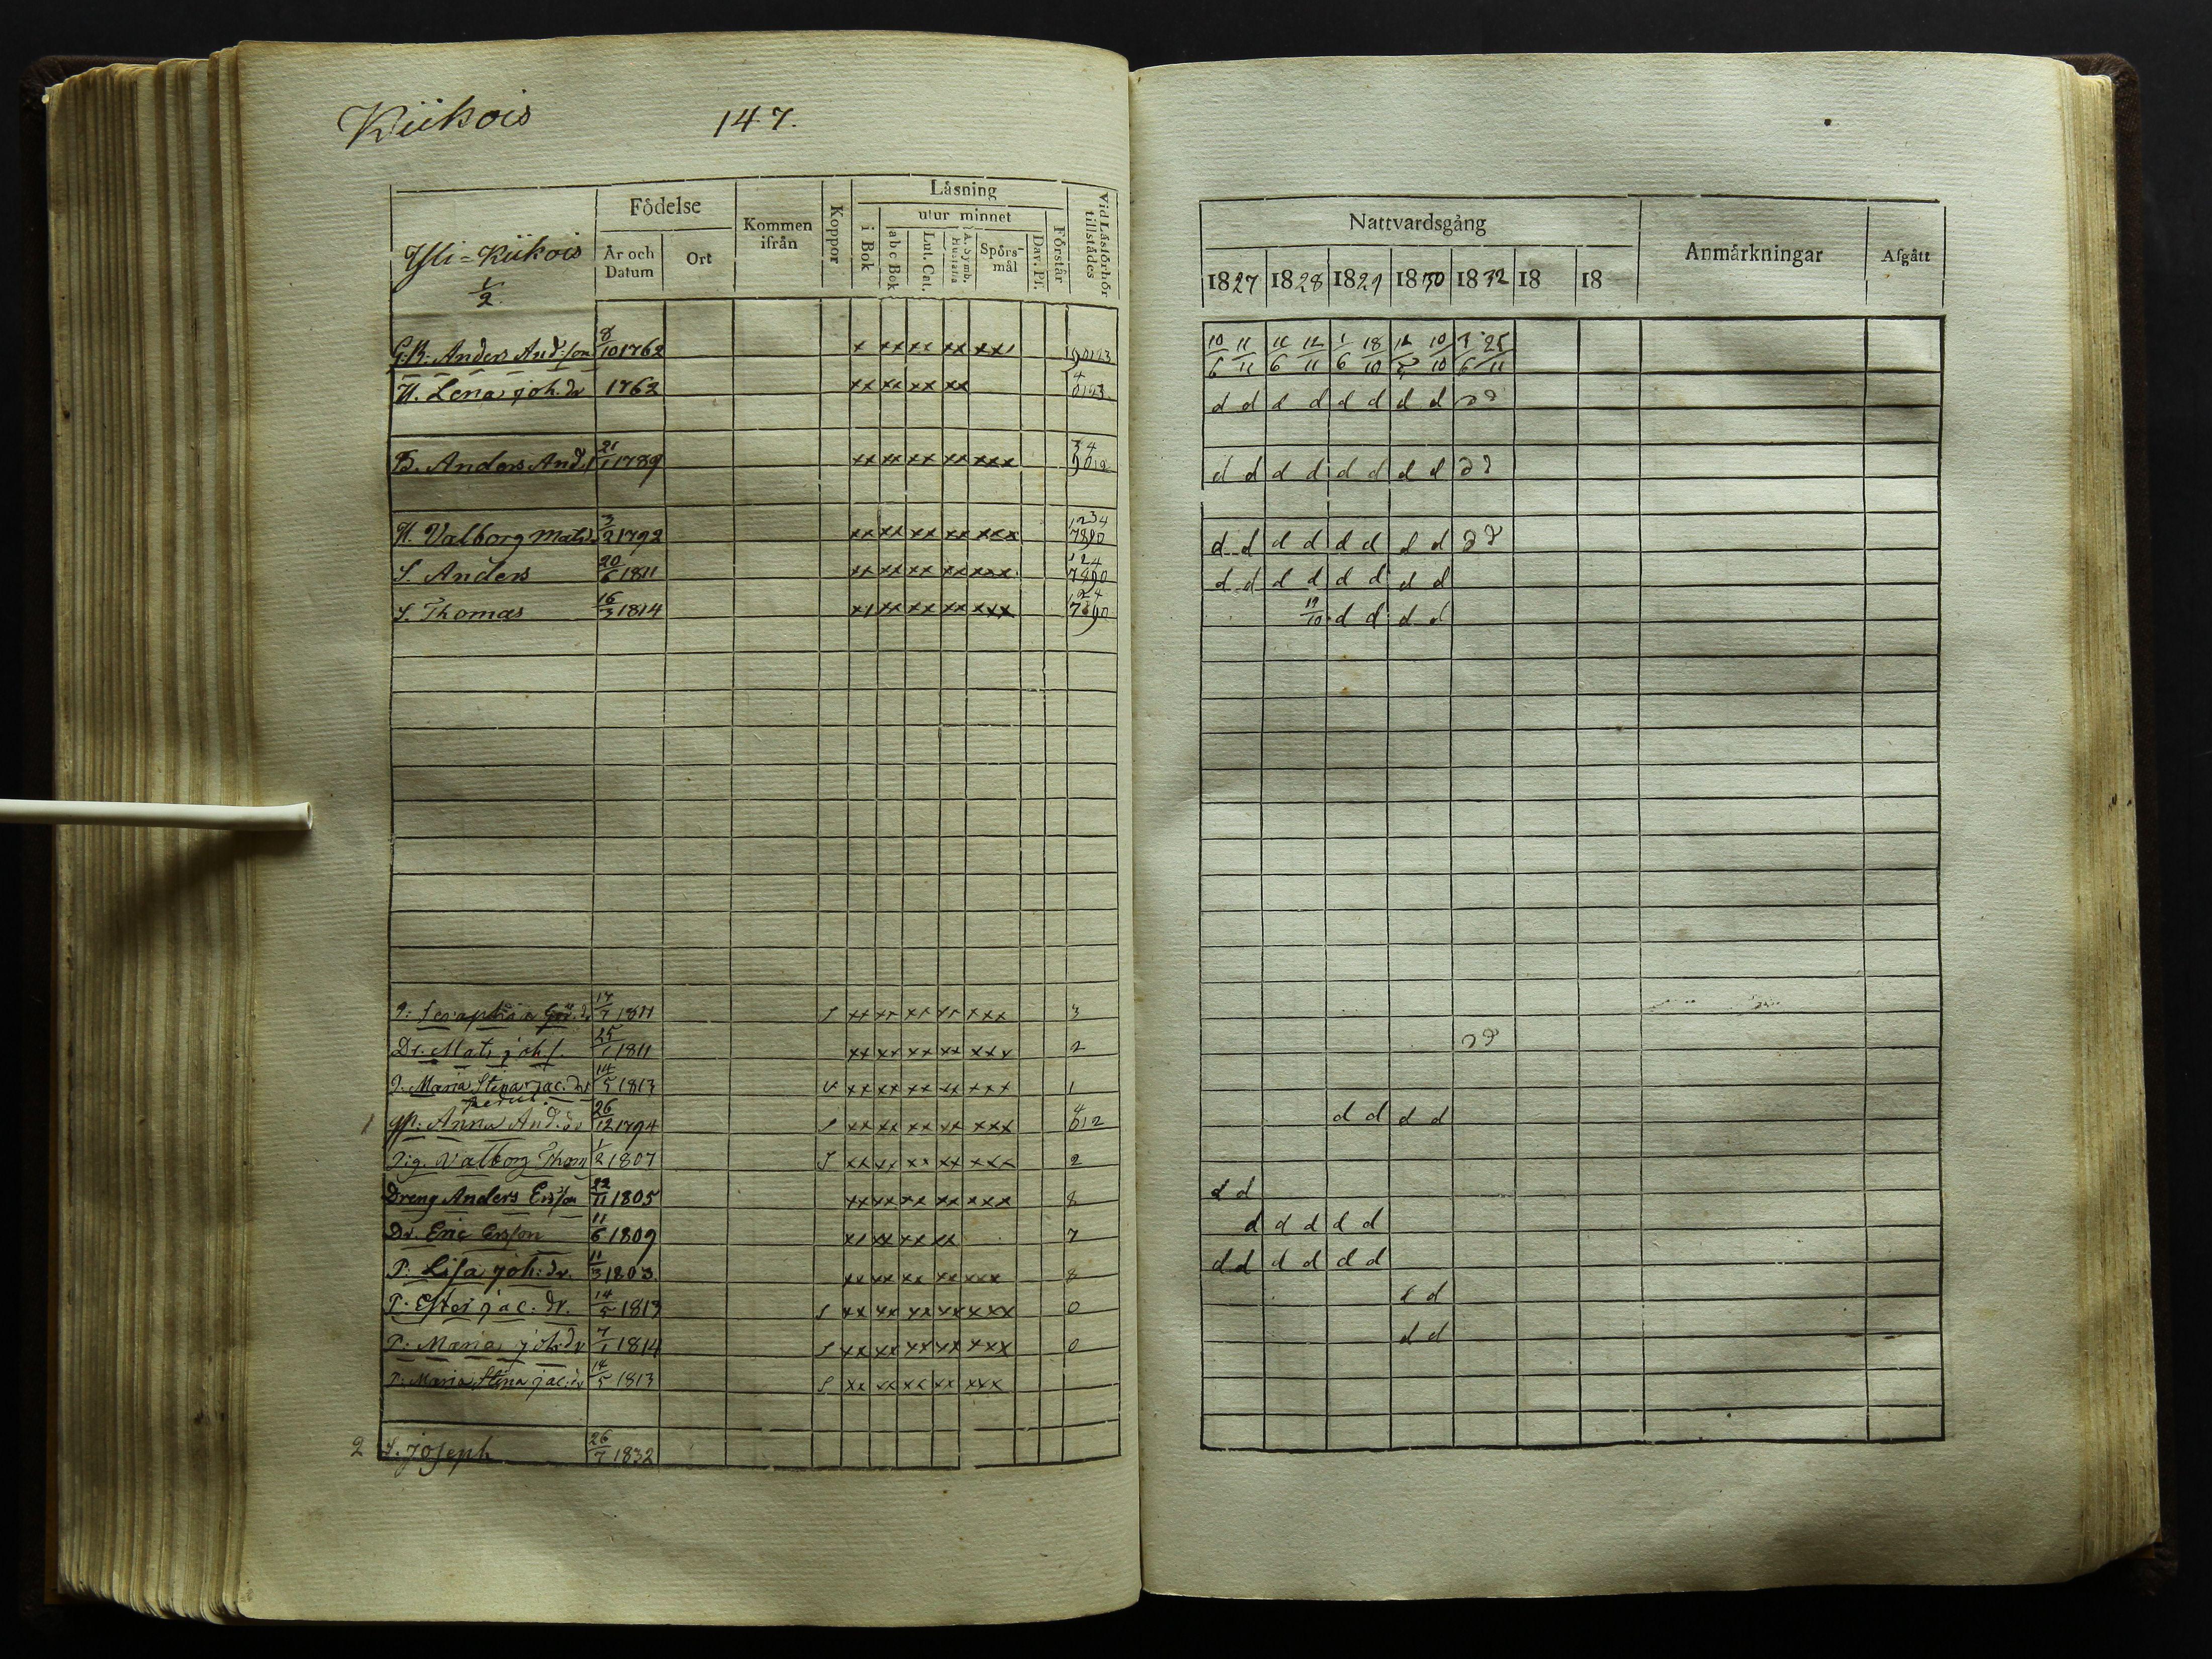 Kiikois 147.
Födelse
Kommen ifrån
Koppor
Låsning
utur minnet
i Bok
a b c Bok
Lut. Cat.
A. Symb. Hustafla
Spörs-mål
Dav. Ps.
Förstår
Vid Läsförhör tillstädes
Yli=Kiikois 1/2.
År och Datum
Ort
G:B: Anders And:son 8/10 1762 x xx xx xx xx 90123
H. Lena joh. dr 1762 xx xx xx xx 4 0123
B. Anders And.s 21/1 1789 xx xx xx xx xxx 34 9012
H. Valborg Mats.dr 3/2 1792 xx xx xx xx xxx 1234 7890
S. Anders 20/6 1811 xx xx xx xx xxx 124 7890
S. Thomas 16/3 1814 xx xx xx xx xxx 124 7890
17/7 1811 S xx xx xx xx xxx 3
Dr. Mats joh.s. 25/1 1811 xx xx xx xx xxx 2
P. Maria Stina jac. dr 14/5 1813 v xx xx xx xx xxx 1
1 Anna And. dr 26/12 1794 S xx xx xx xx xxx 4 012
Pig. Valborg Thom 1/2 1807 S xx xx xx xx xxx 2
Dreng Anders Ersson 22/11 1805 xx xx xx xx xxx 8
Dr. Eric Ersson 11/6 1809 xx xx xx xx 7
P: Lisa joh: dr. 11/3 1803 xx xx xx xx xxx 8
P. Ester jac. dr. 14/5 1813 S xx xx xx xx xxx 0
P. Maria joh.dr 7/1 1814 S xx xx xx xx xxx 0
P: Maria Stina jac: dr 14/5 1813 S xx xx xx xx xxx
2 S. joseph 26/7 1832
Nattvardsgång
Anmårkningar
Afgått
1827 1828 1829 1830 1832 18 18
10/6 11/11 11/6 12/11 1/6 18/10 10/10 25/11
d d d d d d d d d d
d d d d d d d d d d
d d d d d d d d d d
d d d d d d d d
19/10 d d d d
d d
d d d d
d d
d d d d d
d d d d d d
d d
d d